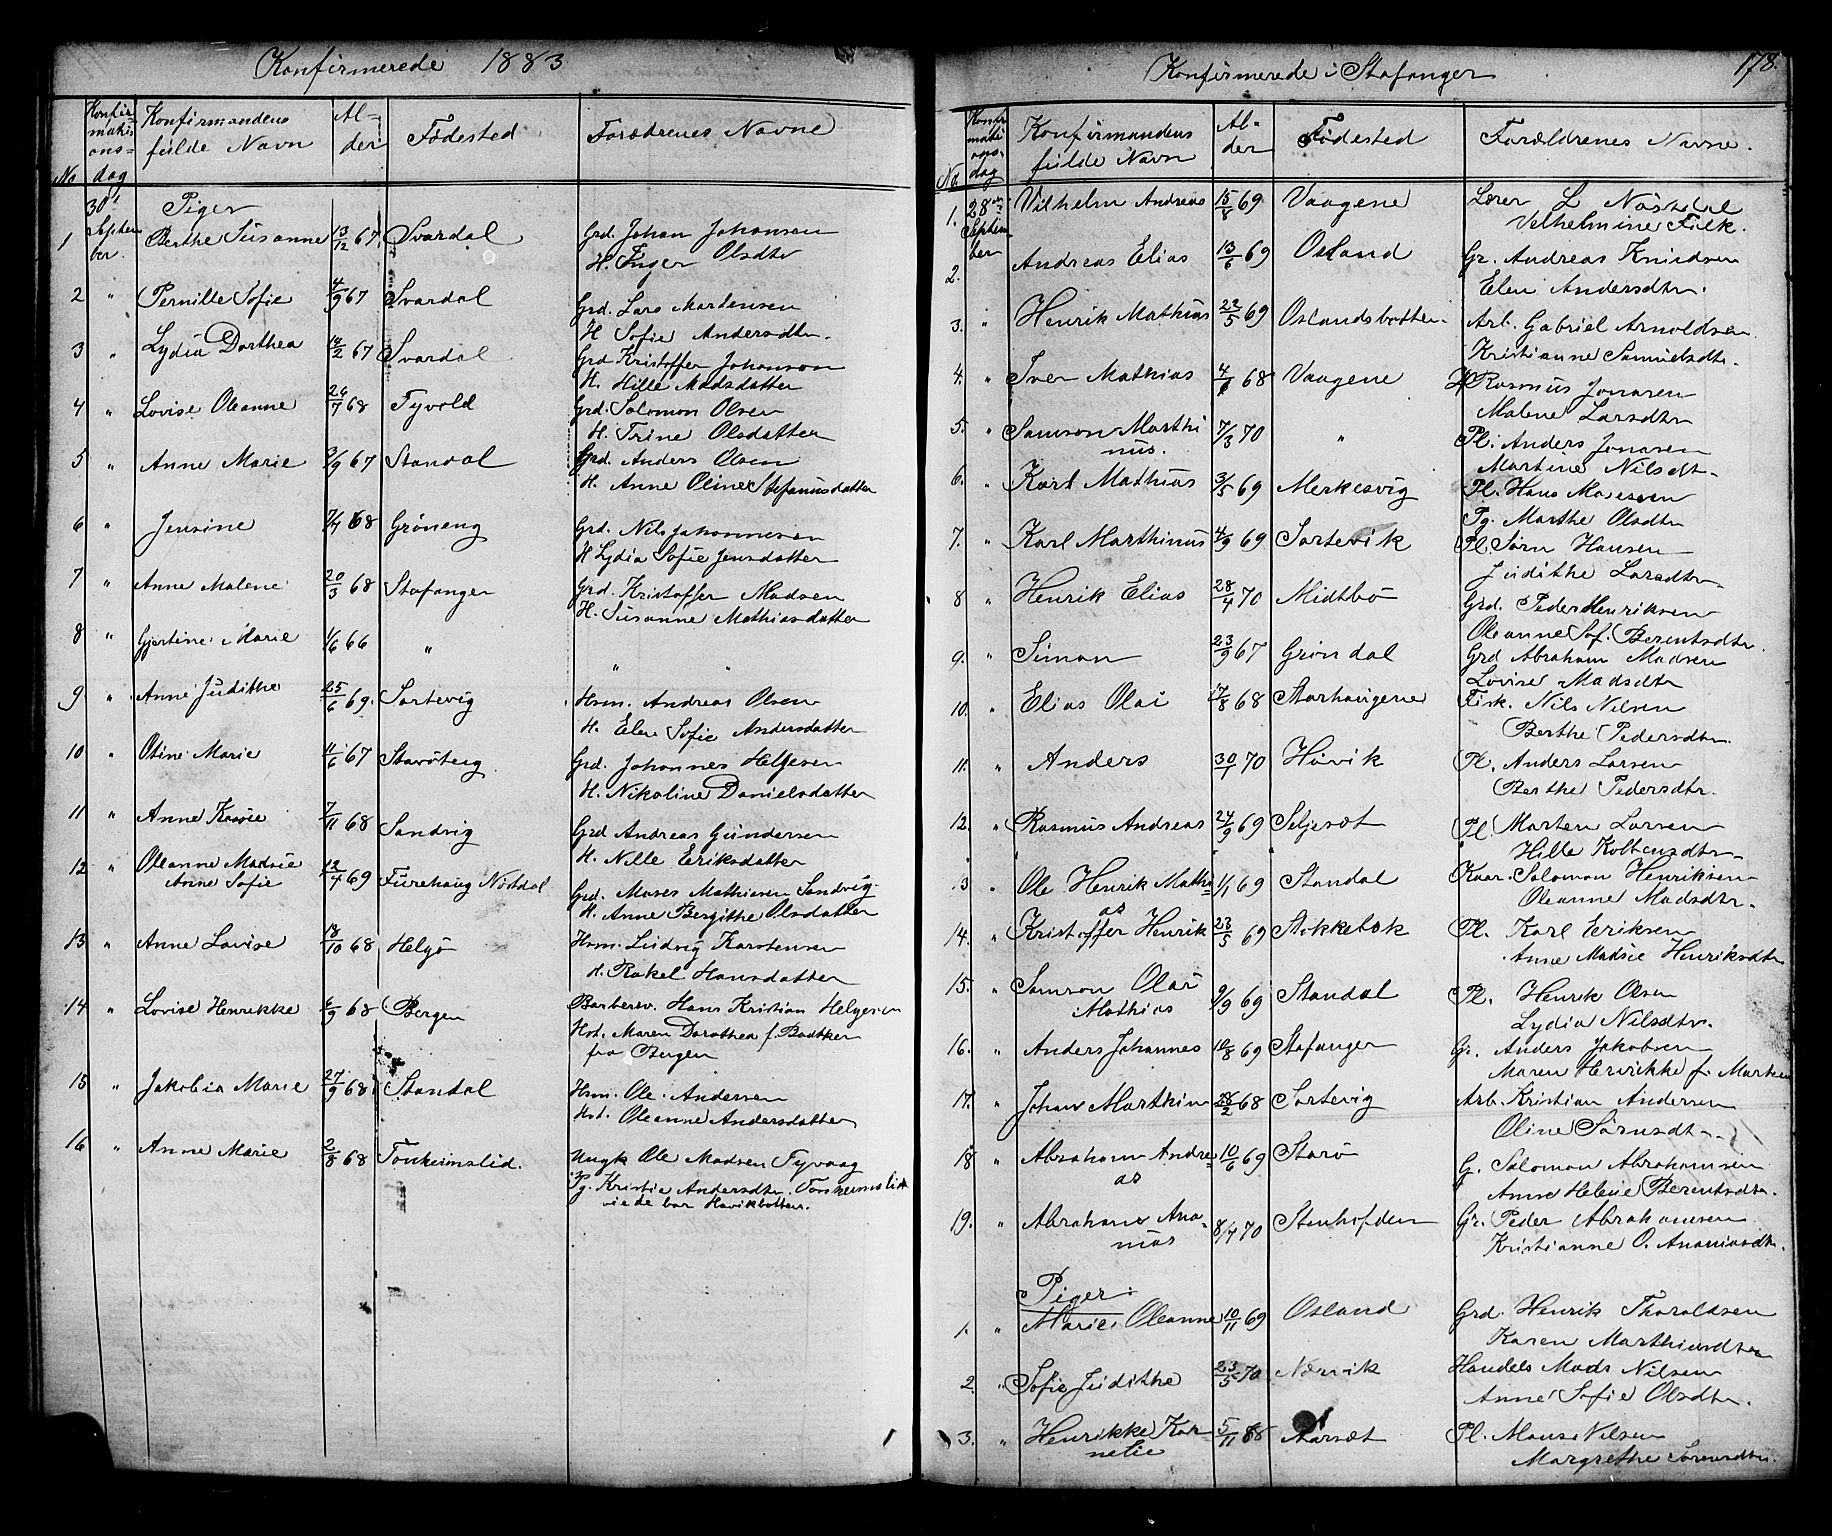 Konfirmerede 1883
No
Konfirmationsdag
Konfirmandens fulde Navn
Alder
Fødested
Forædrenes Navne
30' September
Piger
1 Berthe Susanne 13/12 67 Svardal Grd. Johan Johansen
H. Inger Olsdtr
2 " Pernille Sofie 4/9 67 Svardal Grd. Lars Martensen
H Sofie Andersdtr.
3 " Lydia Dorthea 14/2 67 Svardal Grd Kristoffer Johanson
H. Hille Madsdatter
4 " Lovise Oleanne 26/7 68 Tyvold Grd. Salomon Olsen
H. Trine Olsdatter
5 " Anne Marie 3/9 67 Standal Grd. Anders Olsen
H. Anne Oline Stefanusdatter
6 " Jensine 7/7 68 Grøneng Grd. Nils Johannesen
H Lydia Sofie Jensdatter
7 " Anne Malene 20/3 68 Stafanger Grd. Kristoffer Madsen
H. Susanne Mathiasdatter
8 " Gjertine Marie 1/6 66 " " "
9 " Anne Judithe 25/6 69. Sortevig Hsm. Andreas Olsen
H. Elen Sofie Andersdatter
10 " Oline Marie 11/6 67 Grd. Johannes Helgesen
H. Nikoline Danielsdatter
11 " Anne 7/11 68 Sandvig Grd Andreas Gundersen
H. Nille Eriksdatter
12 " Oleanne Madsie Anne Sofie 12/4 69 Furehaug Nøstdal Grd. Moses Mathiesen Sandvig
H. Anne Bergithe Olsdatter
13 " Anne Lovise 18/10 68 Helgø Hsm. Ludvig Karstensen
H. Rakel Hansdatter
14 " Lovise Henrikke 6/9 68 Bergen Barberer. Hans Kristian Helgesen
Hst. Maren Dorothea f. Badtker
fra Bergen
15 " Jakobia Marie 27/9 68 Standal Hsm. Ole Andersen
Hst. Oleanne Andersdatter
16 " Anne Marie 2/8 68 Tonheimslid. Ungk Ole Madsen Tyvaag
Pg. Kristie Andersdtr. Tonheimslid
viede bor Havikbotten.
Konfirmerede i Stafanger
178.
No.
Konfirmationsdag
Konfirmandens fulde Navn
Alder
Fødested
Forældrenes Navne.
1. 28de September Vilhelm Andreas 15/8 69 Vaagene Lærer L Nøstdal
Velhelmine Falk.
2. Andreas Elias 13/6 69 Osland Gr. Andreas Knudsen
Elen Andersdtr.
3. " Henrik Mathias 22/5 69 Oslandsbotten Arb. Gabriel Arnoldsen
Kristianne Samuelsdtr.
4. " Iver Mathias 4/6 68 Vaagene Rasmus Jonasen
Malene Larsdtr
5. " Samson Marthinus. 7/3 70 " Pl. Anders Jonasen
Martine Nilsdt
6. " Karl Mathias 3/5 69 Merkesvig Pl. Hans Mosesen
Pg. Marthe Olsdtr
7. " Karl Marthinus 4/9 69 Sortevik Pl Sørn Hansen
Judithe Larsdtr
8 " Henrik Elias 28/4 70 Midtbø Grd. Peder Henriksen
Oleanne Sof. Berentsdtr.
9. " Simon 23/9 67 Grøndal Grd Abraham Madsen
Lovise Madsdtr
10. " Elias Olai 17/8 68 Storhaugene Fisk. Nils Nilsen
Berthe Pedersdtr.
11. " Anders 30/1 70 Høvik Pl. Anders Larsen
Berthe Pedersdtr.
12. " Rasmus Andreas 24/9 69 Seljesæt Pl Morten Larsen
Hille Kolbensdtr
13 " Ole Henrik Mathias 1/1 69 Standal Kaar. Salomon Henriksen
Oleanne Madsdtr.
14. " Kristoffer Henrik 23/5 69 Stokkebæk Pl. Karl Eriksen
Anne Madsie Henriksdtr
15. " Samson Olai Mathias 9/9 69 Standal Pl. Henrik Olsen
Lydia Nilsdtr.
16. " Anders Johannes 10/8 69 Stafanger Gr. Anders Jakobsen
Maren Henrikke f.
17. " Johan Marthin 28/2 68 Sortevig Arb. Kristian Andersen
Oline Sørnsdtr
18 " Abraham Andreas 10/6 69 Starø G. Salomon Abrahamsen
Anne Helene Berentsdtr.
19. " Abraham Ananias 8/4 70 Stenhofden Gr. Peder Abrahamsen
Kristianne O. Ananiasdtr.
Piger:
1. " Marie Oleanne 10/11 69 Osland Grd. Henrik Thoraldsen
Karen Marthinsdtr
2. " Sofie Judithe 23/5 70 Nærvik Handels Mads Nilsen
Anne Sofie Olsdtr.
3. " Henrikke Kornelie 5/11 68 Aarsæt Pl. Mons Nilsen
Margrethe Sørensdtr.